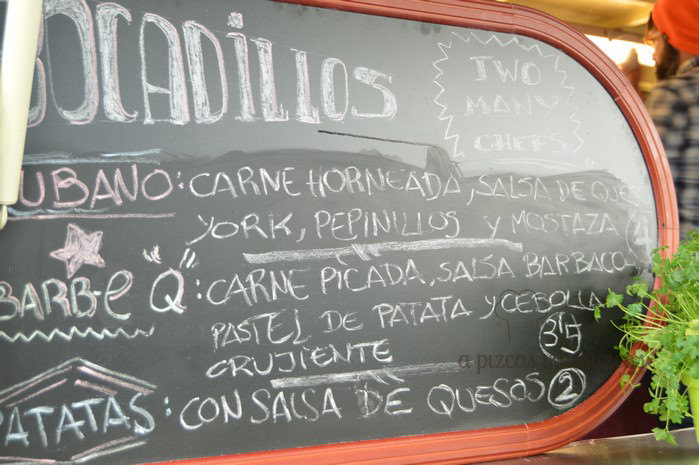 BOCADILLOS
TWO
MANY
CHEFS
UBANO: CARNE HORNEADA, SALSA DE QUE
YORK, PEPINILLOS Y MOSTAZA
BARB-e "Q": CARNE PICADA, SALSA BARBACOA
PASTEL DE PATATA Y CEBOLLA
CRUJIENTE
3'5
PATATAS: CON SALSA DE QUESOS 2
a pizcas